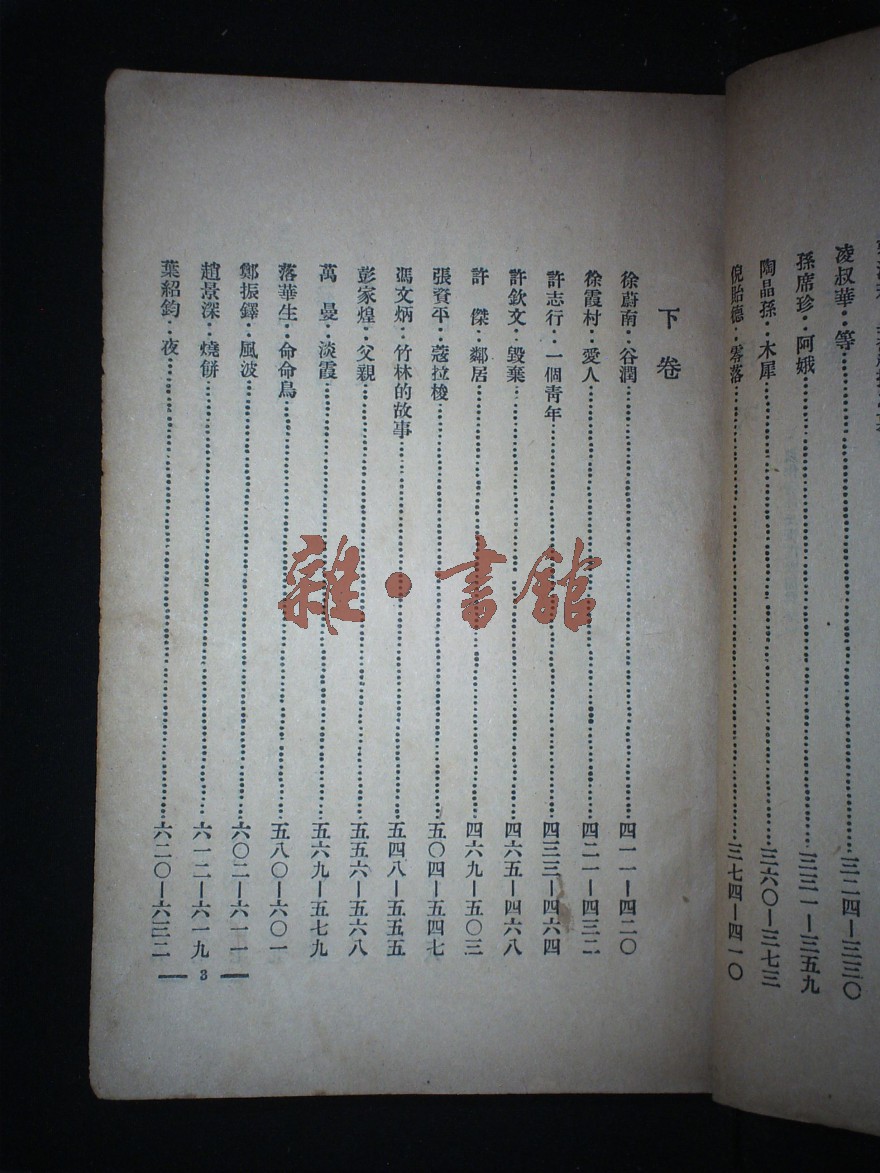 凌叔華：等……三二四—三三〇
孫席珍：阿娥……三三一—三五九
陶晶孫：木犀……三六〇—三七三
倪貽德：零落……三七四—四一〇
下卷
徐蔚南：谷潤……四一一—四二〇
徐霞村：愛人……四二一—四三二
許志行：一個靑年……四三三—四六四
許欽文：毀棄……四六五—四六八
許　傑：鄰居……四六九—五〇三
張資平：蔻拉梭……五〇四—五四七
馮文炳：竹林的故事……五四八—五五五
彭家煌：父親……五五六—五六八
萬　曼：淡霞……五六九—五七九
落華生：命命鳥……五八〇—六〇一
鄭振鐸：風波……六〇二—六一一
趙景深：燒餅……六一二—六一九
葉紹鈞：夜……六二〇—六三二
— 3 —
雜·書館